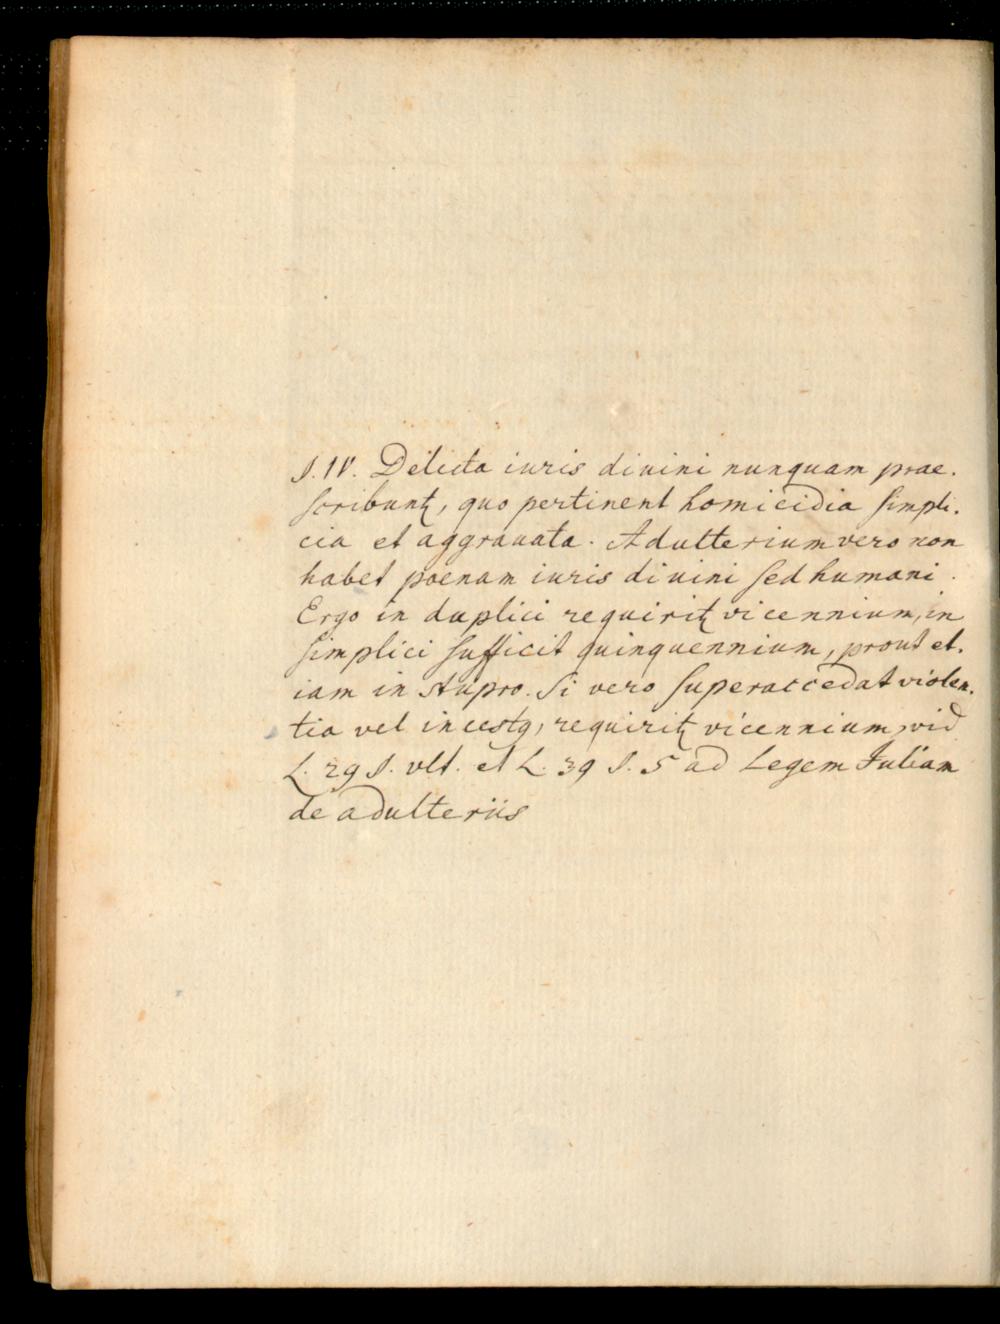 §. IV. Delicta iuris diuini nunquam prae-
scribunt, quo pertinent homicidia simpli-
cia et aggrauata. Adulterium vero non
habet poenam iuris diuini sed humani.
Ergo in duplici requirit vicennium, in
simplici sufficit quinquennium, prout et-
iam in stupro. Si vero superaccedat violen-
tia vel incestq, requirit vicennium, vid
L. 29 §. vlt. et L. 39 §. 5 ad Legem Iuliam
de adulteriis